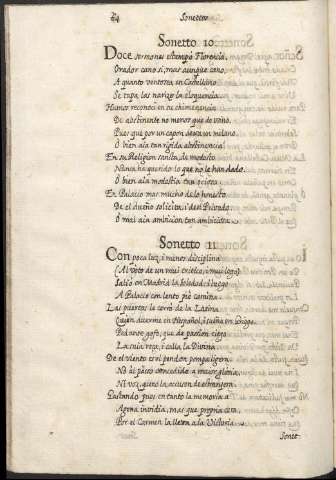 64 Sonettos
Sonetto 10.
Doce sermones estampò Florencia,
Orador cano si, mas aunque cano,
A quanto ventosea en Castellano
Se tapa las narizes la eloquencia.
Humos reconoci en su chimeneencia
De abstinente no menos que de vano,
Pues que por un capon dexa un milano.
O bien aia tan rigida abstinencia!
En su Religion sancta, de modesto
Nunca ha querido lo que no le han dado.
O bien aia modestia tan
En Palacio mas mucho de lo honesto
De el dueño solicita, i del Privado.
O mal aia ambicion tan ambiciosa.
Sonetto 11.
Con poca luz, i menos disciplina
(Al voto de un mui critico, i mui lego)
Saliò en Madrid la Soledad, i luego
A Palacio con lento pie camina.
Las puertas le cerrò de la Latina
Quien duerme en Hespañol, i sueña en Griego,
Pedante gofo, que de passion ciego
La suia reza, i calla la Divina.
De el viento es el pendon pompa ligera,
No ai passo concedido a maior gloria,
Ni voz, que no la acusen de estrangera.
Gastando pues en tanto la memoria
Agena invidia, mas que propria cera,
Por el Carmen la lleva a la Victoria.
Sonet-